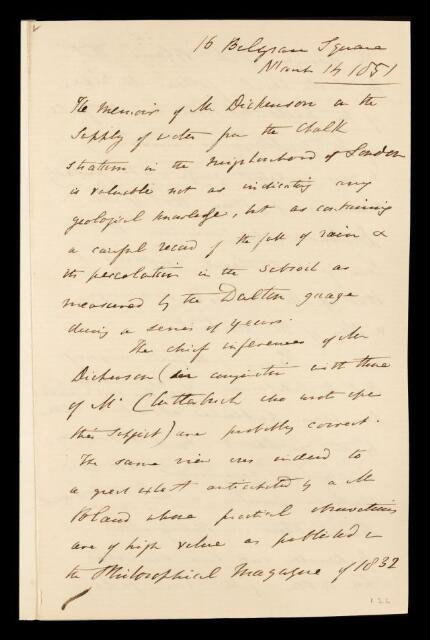 16 Belgrave Square
March 14 1851
The memoir of Mr Dickenson on the
Supply of water from the Chalk
stratum in the neighborhood of London
is valuable not as indicating any
geological knowledge, but as containing
a careful record of the fall of rain &
its percolation in the subsoil as
measured by the Dalton guage
during a series of years.
The chief inferences of Mr
Dickenson (in conjunction with those
of Mr Clutterbuck who wrote upon
this subject) are probably correct.
The same view was indeed to
a great extent anticipated by a Mr
Bland whose practical observations
are of high value as published in
the Philosophical Magazine of 1832
122